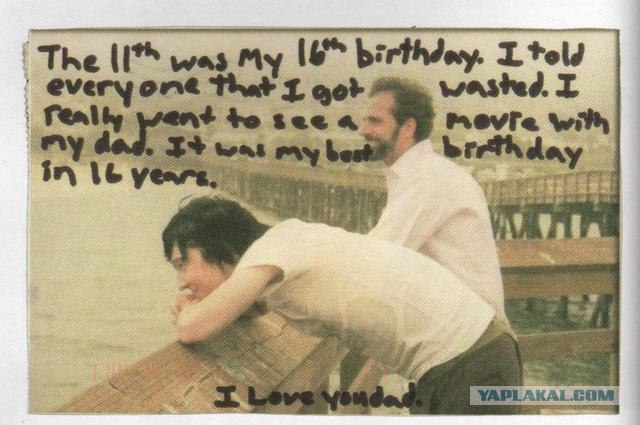 The 11th was My 16th birthday. I told
everyone that I got wasted. I
really went to see a movie with
my dad. It was my best birthday
in 16 years.
I Love you dad.
YAPLAKAL.COM